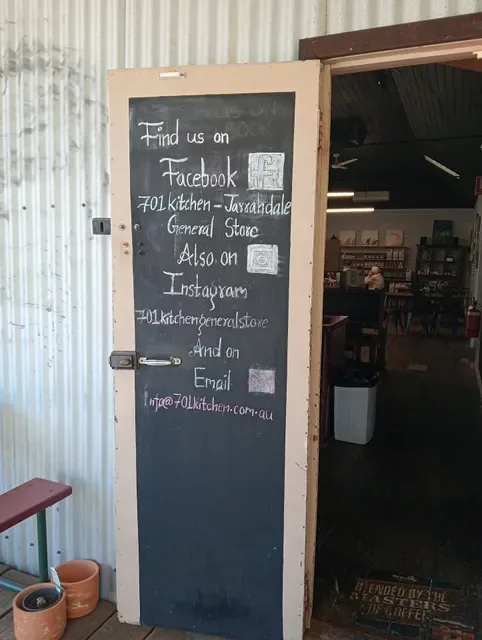 Find us on
Facebook f
701 kitchen - Jarrahdale
General Store
Also on
Instagram
701kitchengeneralstore
And on
Email
Info@701kitchen.com.au
BLENDED BY THE
MASTERS
OF COFFEE